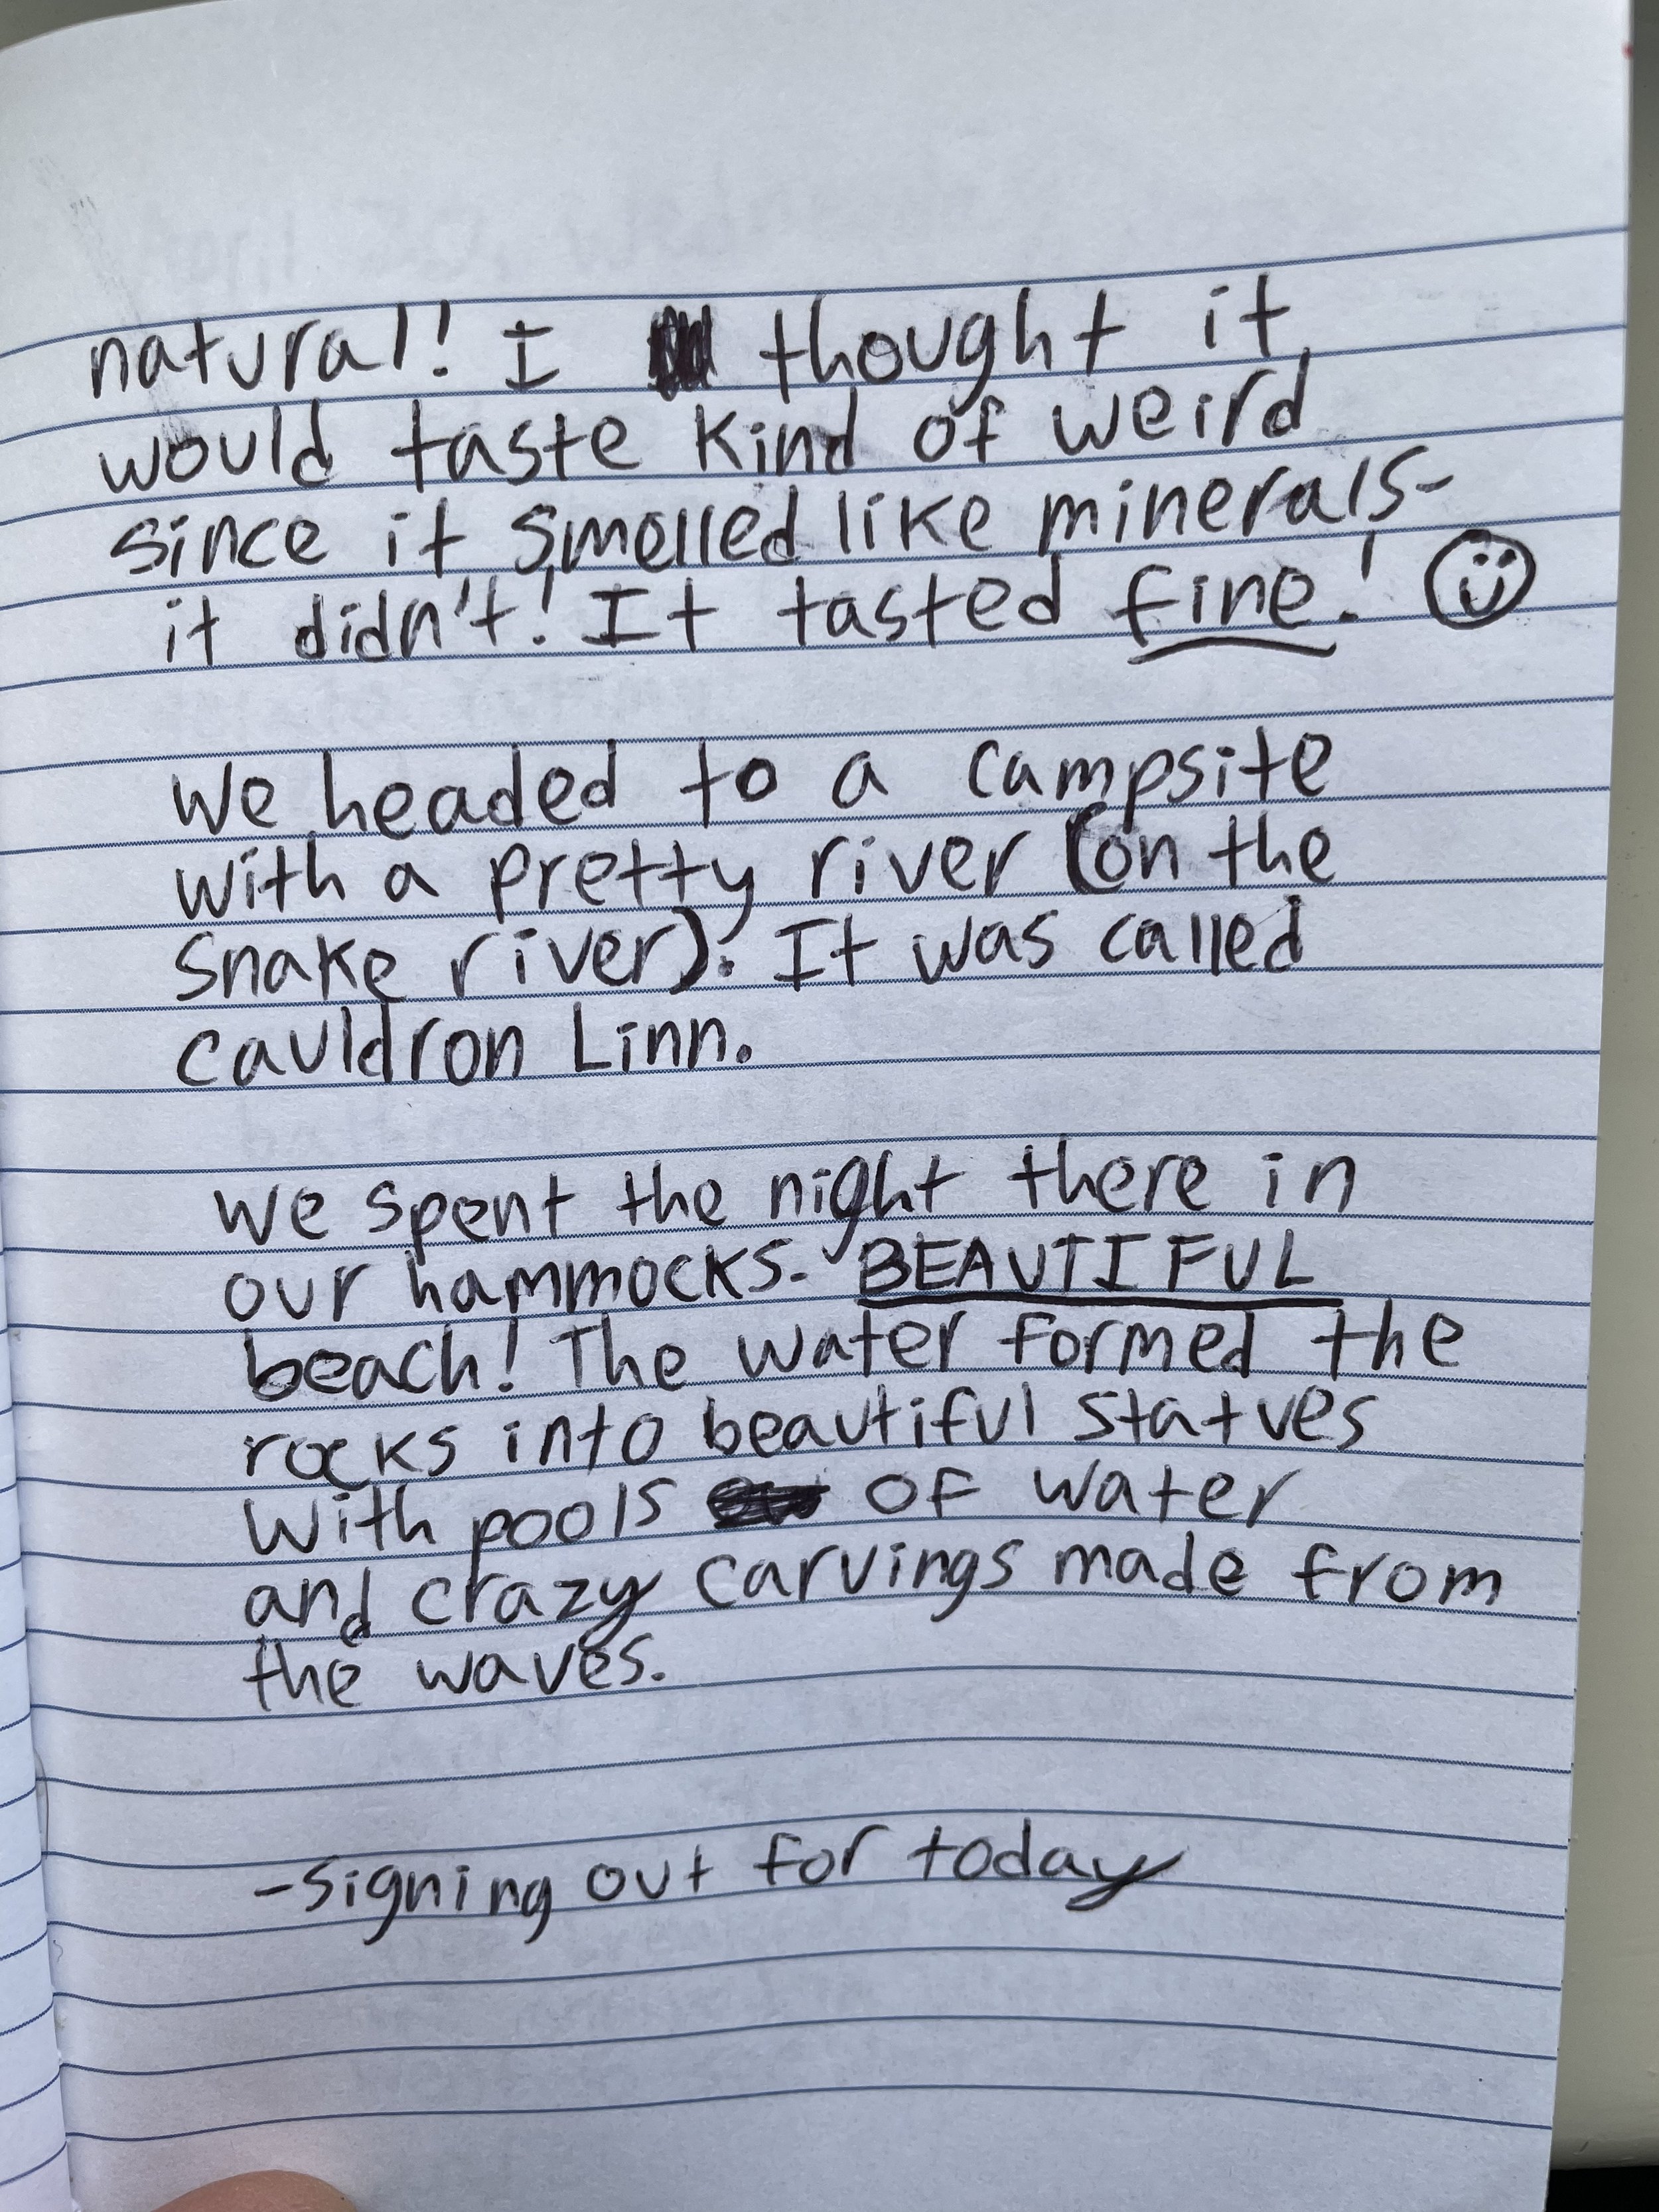 natural! I thought it
would taste kind of weird
since it smelled like minerals-
it didn't! It tasted fine!
We headed to a campsite
with a pretty river (on the
snake river). It was called
cauldron Linn.
We spent the night there in
our hammocks. BEAUTIFUL
beach! The water formed the
rocks into beautiful statues
with pools of water
and crazy carvings made from
the waves.
-signing out for today